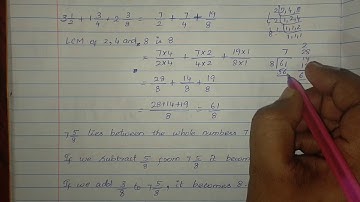 3 1/2 + 1 3/4 + 2 3/8 = 7/2 + 7/4 + 19/8
LCM of 2, 4 and 8 is 8
= 7×4/2×4 + 7×2/4×2 + 19×1/8×1
= 28/8 + 14/8 + 19/8
= 28+14+19/8 = 61/8
7
8 61
56
7 5/8 lies between the whole numbers 7
If we subtract 5/8 from 7 5/8 it becom
If we add 3/8 to 7 5/8, it becomes 8